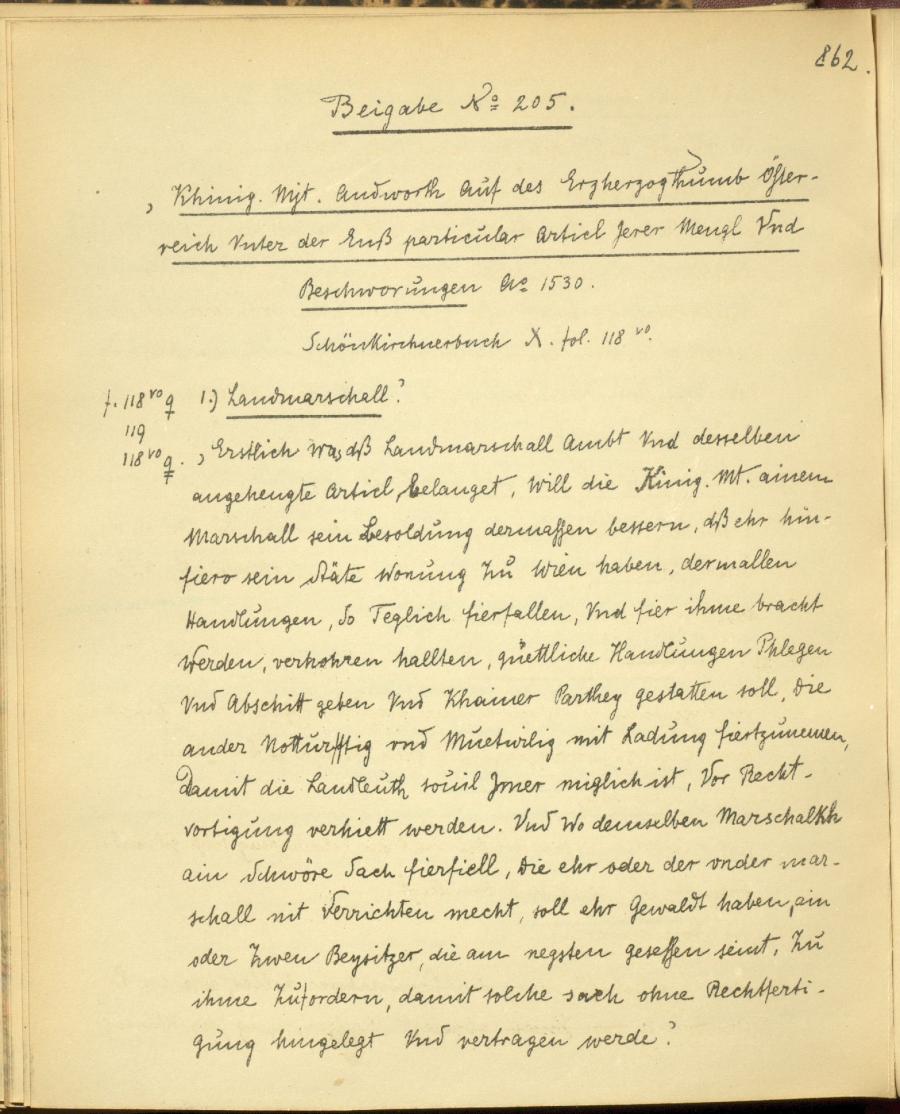 862.
Beigabe No 205.
„Khinig. Mjt. Andworth Auf des Erzherzogthumb Öster-
reich Vnter der Enß particular Articl Jerer Mengl Vnd
Beschworungen Ao 1530.
Schönkirchnerbuch X. fol. 118 vo.
f. 118 vo 1.) Landmarschall?
119
118 vo. „Erstlich was dß Landmarschall Ambt Vnd desselben
angehengte Articl belanget, Will die Künig. Mt. ainem
Marschall sein Besoldung dermassen bessern, dß ehr hin-
fiero sein stäte Wonung Zu Wien haben, dermallen
Handlungen, So Teglich fierfallen, Vnd fier ihme bracht
Werden, verhohren hallten, güettliche Handlungen Phlegen
Vnd Abschitt geben Vnd Khainer Parthey gestatten soll, Die
ander Notturfftig vnd Muetwilig mit Ladung fiertzunemen,
Damit die Landleuth souil Jmer miglich ist, Vor Recht-
vortigung verhiett werden. Vnd Wo demselben Marschalkh
ain Schwöre Sach fierfiell, Die ehr oder der vnder mar-
schall nit Verrichten mecht, soll ehr Gewaldt haben, ain
oder Zwen Beysitzer, die am negsten gesessen seint, Zu
ihme Zufordern, damit solche sach ohne Rechtferti-
gung hingelegt Vnd vertragen werde?